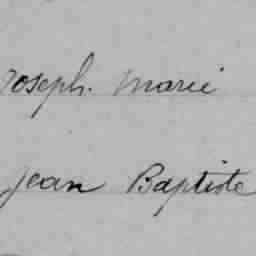 Joseph. Marie
Jean Baptiste